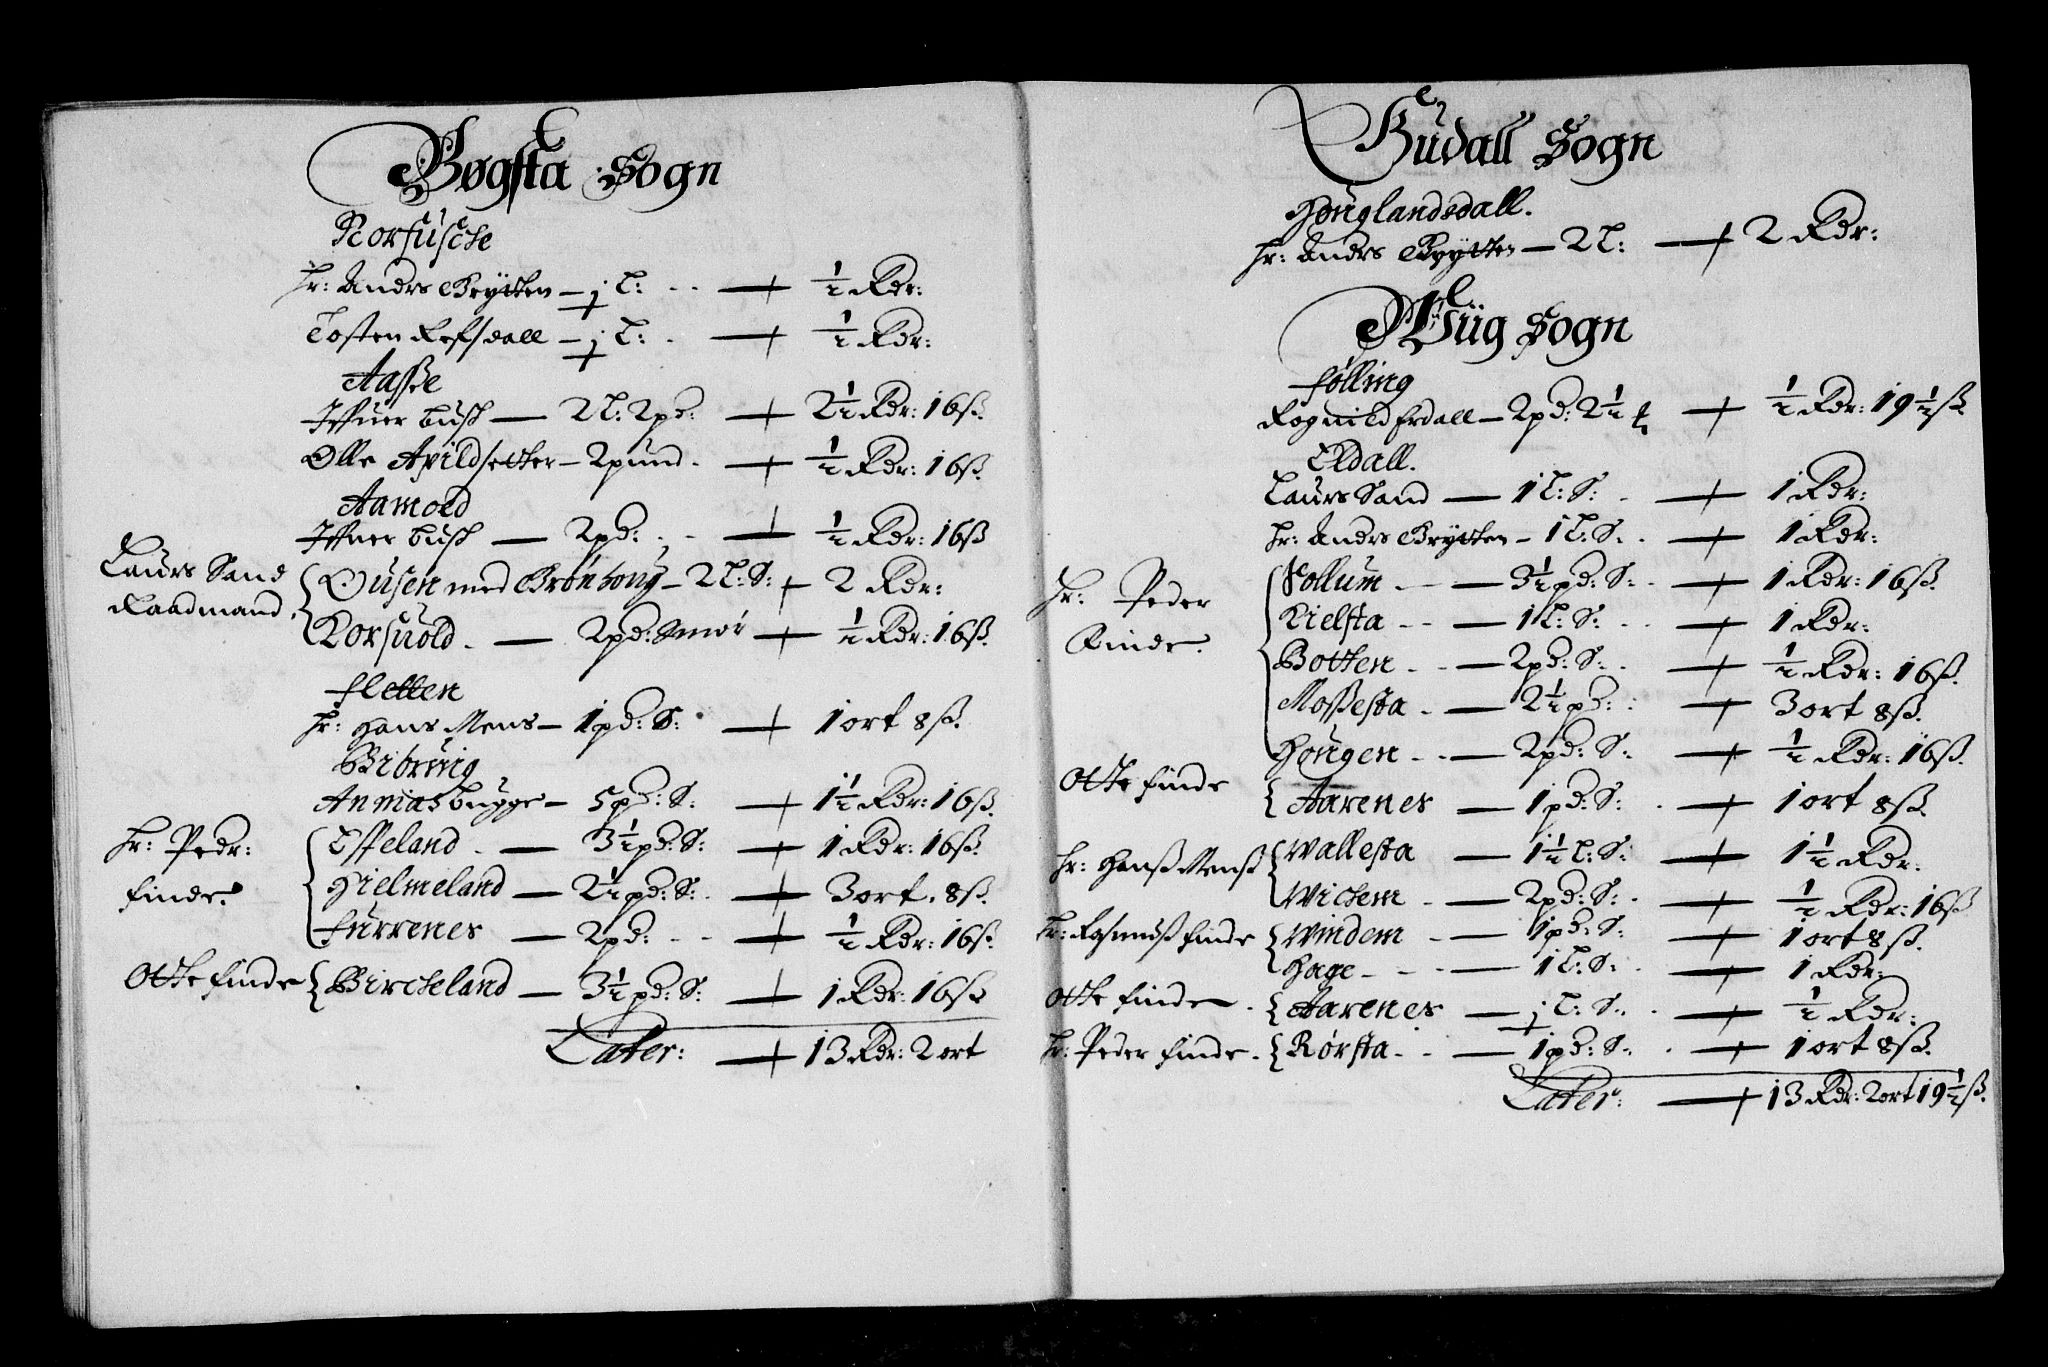 Bøgsta Sogn
Norfusche
Hr: Anders Brytten – ½ L: – ½ Rdr:
Tosten Refsdall – ½ L: – ½ Rdr:
Aasße
Iffuer Busch – 2 L: 2 pd: – 2½ Rdr: 16 ß.
Olle Apildsetter – 2 pund – ½ Rdr: 16 ß.
Aamold
Iffuer Busch – 2 pd: – ½ Rdr: 16 ß
Laurs Sand Raadmand
Ousen med Brønborig – 2 L: S: – 2 Rdr:
Korsuold – 2 pd: Smør – ½ Rdr: 16 ß.
Fletten
Hr: Hans Mens – 1 pd: S: – 1 ort 8 ß.
Bibring
Annias Bugge – 5 pd: S: – 1½ Rdr: 16 ß.
Hr: Pedr: Finde
Effeland – 3½ pd: S: – 1 Rdr: 16 ß.
Hielmeland – 2½ pd: S: – 3 ort. 8 ß.
Furrenes – 2 pd: – ½ Rdr: 16 ß.
Otte Finde { Bircheland – 3½ pd: S: – 1 Rdr: 16 ß
Later: – 13 Rdr: 2 ort
Gudall Sogn
Houglandsdall.
Hr: Anders Brytten – 2 L: – 2 Rdr:
Wiig Sogn
Følling
Rognild Erdall – 2 pd: 2½ – ½ Rdr: 19½ ß.
Eldall.
Laurs Sand – 1 L: S: – 1 Rdr:
Hr: Anders Brytten – 1 L: S: – 1 Rdr:
Hr: Peder Finde
Follum – 3½ pd: S: – 1 Rdr: 16 ß.
Kielsta – 1 L: S: – 1 Rdr:
Botten – 2 pd: S: – ½ Rdr: 16 ß.
Moßesta – 2½ pd: – 3 ort 8 ß.
Hougen – 2 pd: S: – ½ Rdr: 16 ß.
Otte Finde { Aarenes – 1 pd: S: – 1 ort 8 ß.
Hr: Hanß Menß { Wallesta – 1½ L: S: – 1½ Rdr:
Wichem – 2 pd: S: – ½ Rdr: 16 ß
Hr: Rasmuß Finde { Windem – 1 pd: S: – 1 ort 8 ß.
Hage – 1 L: S: – 1 Rdr:
Otte Finde { Aarenes – ½ L: S: – ½ Rdr:
Hr: Peder Finde { Rørsta – 1 pd: S: – 1 ort 8 ß.
Later: – 13 Rdr: 2 ort 19½ ß.